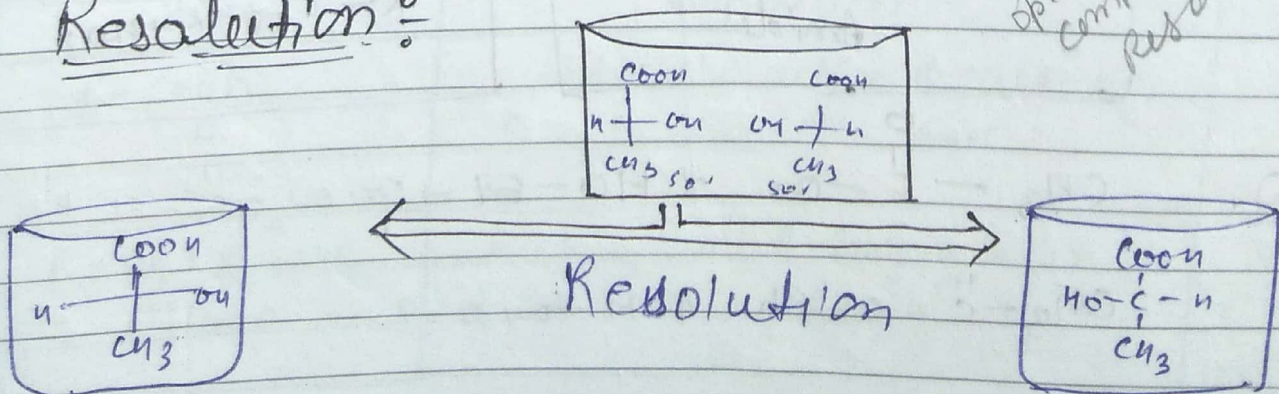 Resolution :-
Op
com
Res
COOH COOH
H OH OH H
CH3 CH3
50% 50%
COOH
H OH
CH3
Resolution
COOH
HO-C-H
CH3